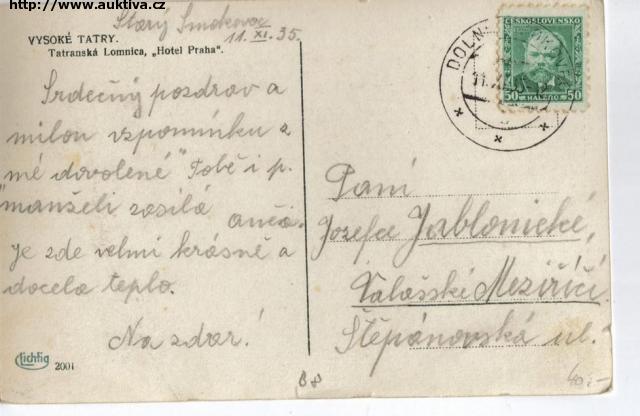 http://www.auktiva.cz
Starý Smokovec
11. XI. 35.
VYSOKÉ TATRY.
Tatranská Lomnica, „Hotel Praha“.
Srdečný pozdrav a
milou vzpomínku z
mé dovolené Tobě i p.
manželi zasílá
Je zde velmi krásně a
docela teplo.
Na zdar!
Lichtig 2001
ČESKOSLOVENSKO
50 HALÉŘŮ 50
DOLNÝ
Paní
Josefce Jablonické,
Valašské Meziříčí
Štěpánovská ul.
40,-